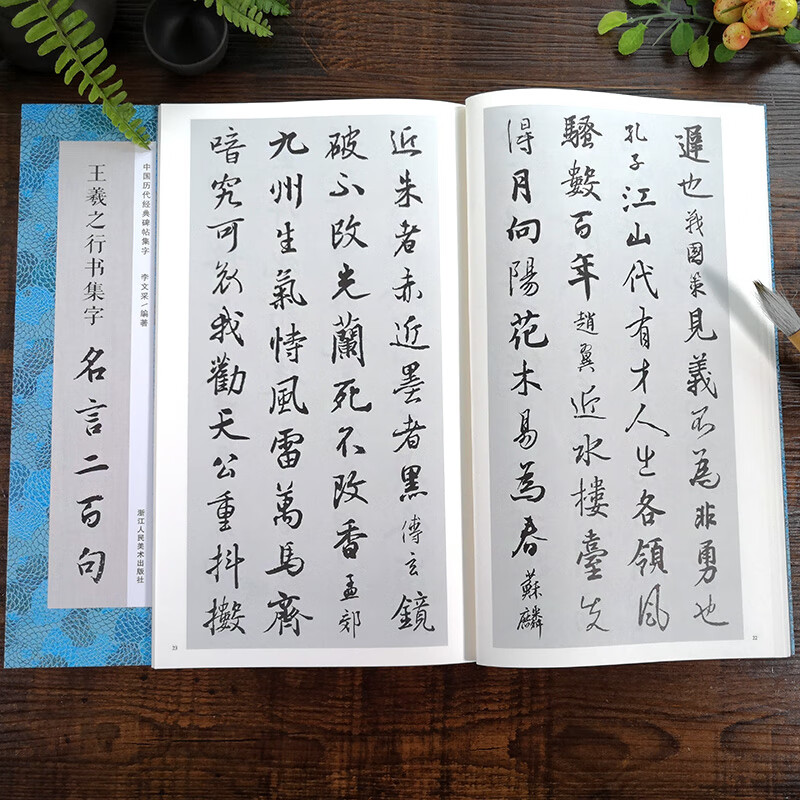 王羲之行书集字 名言二百句
中国历代经典碑帖集字 李文采/编著 浙江人民美术出版社
遲也 戰國策 見義不為非勇也
孔子 江山代有才人出各領風
騷數百年 趙翼 近水樓臺先
得月向陽花木易為春 蘇麟
22
近朱者赤近墨者黑 傅玄 鏡
破不改光蘭死不改香 孟郊
九州生氣恃風雷萬馬齊
喑究可哀我勸天公重抖擻
23